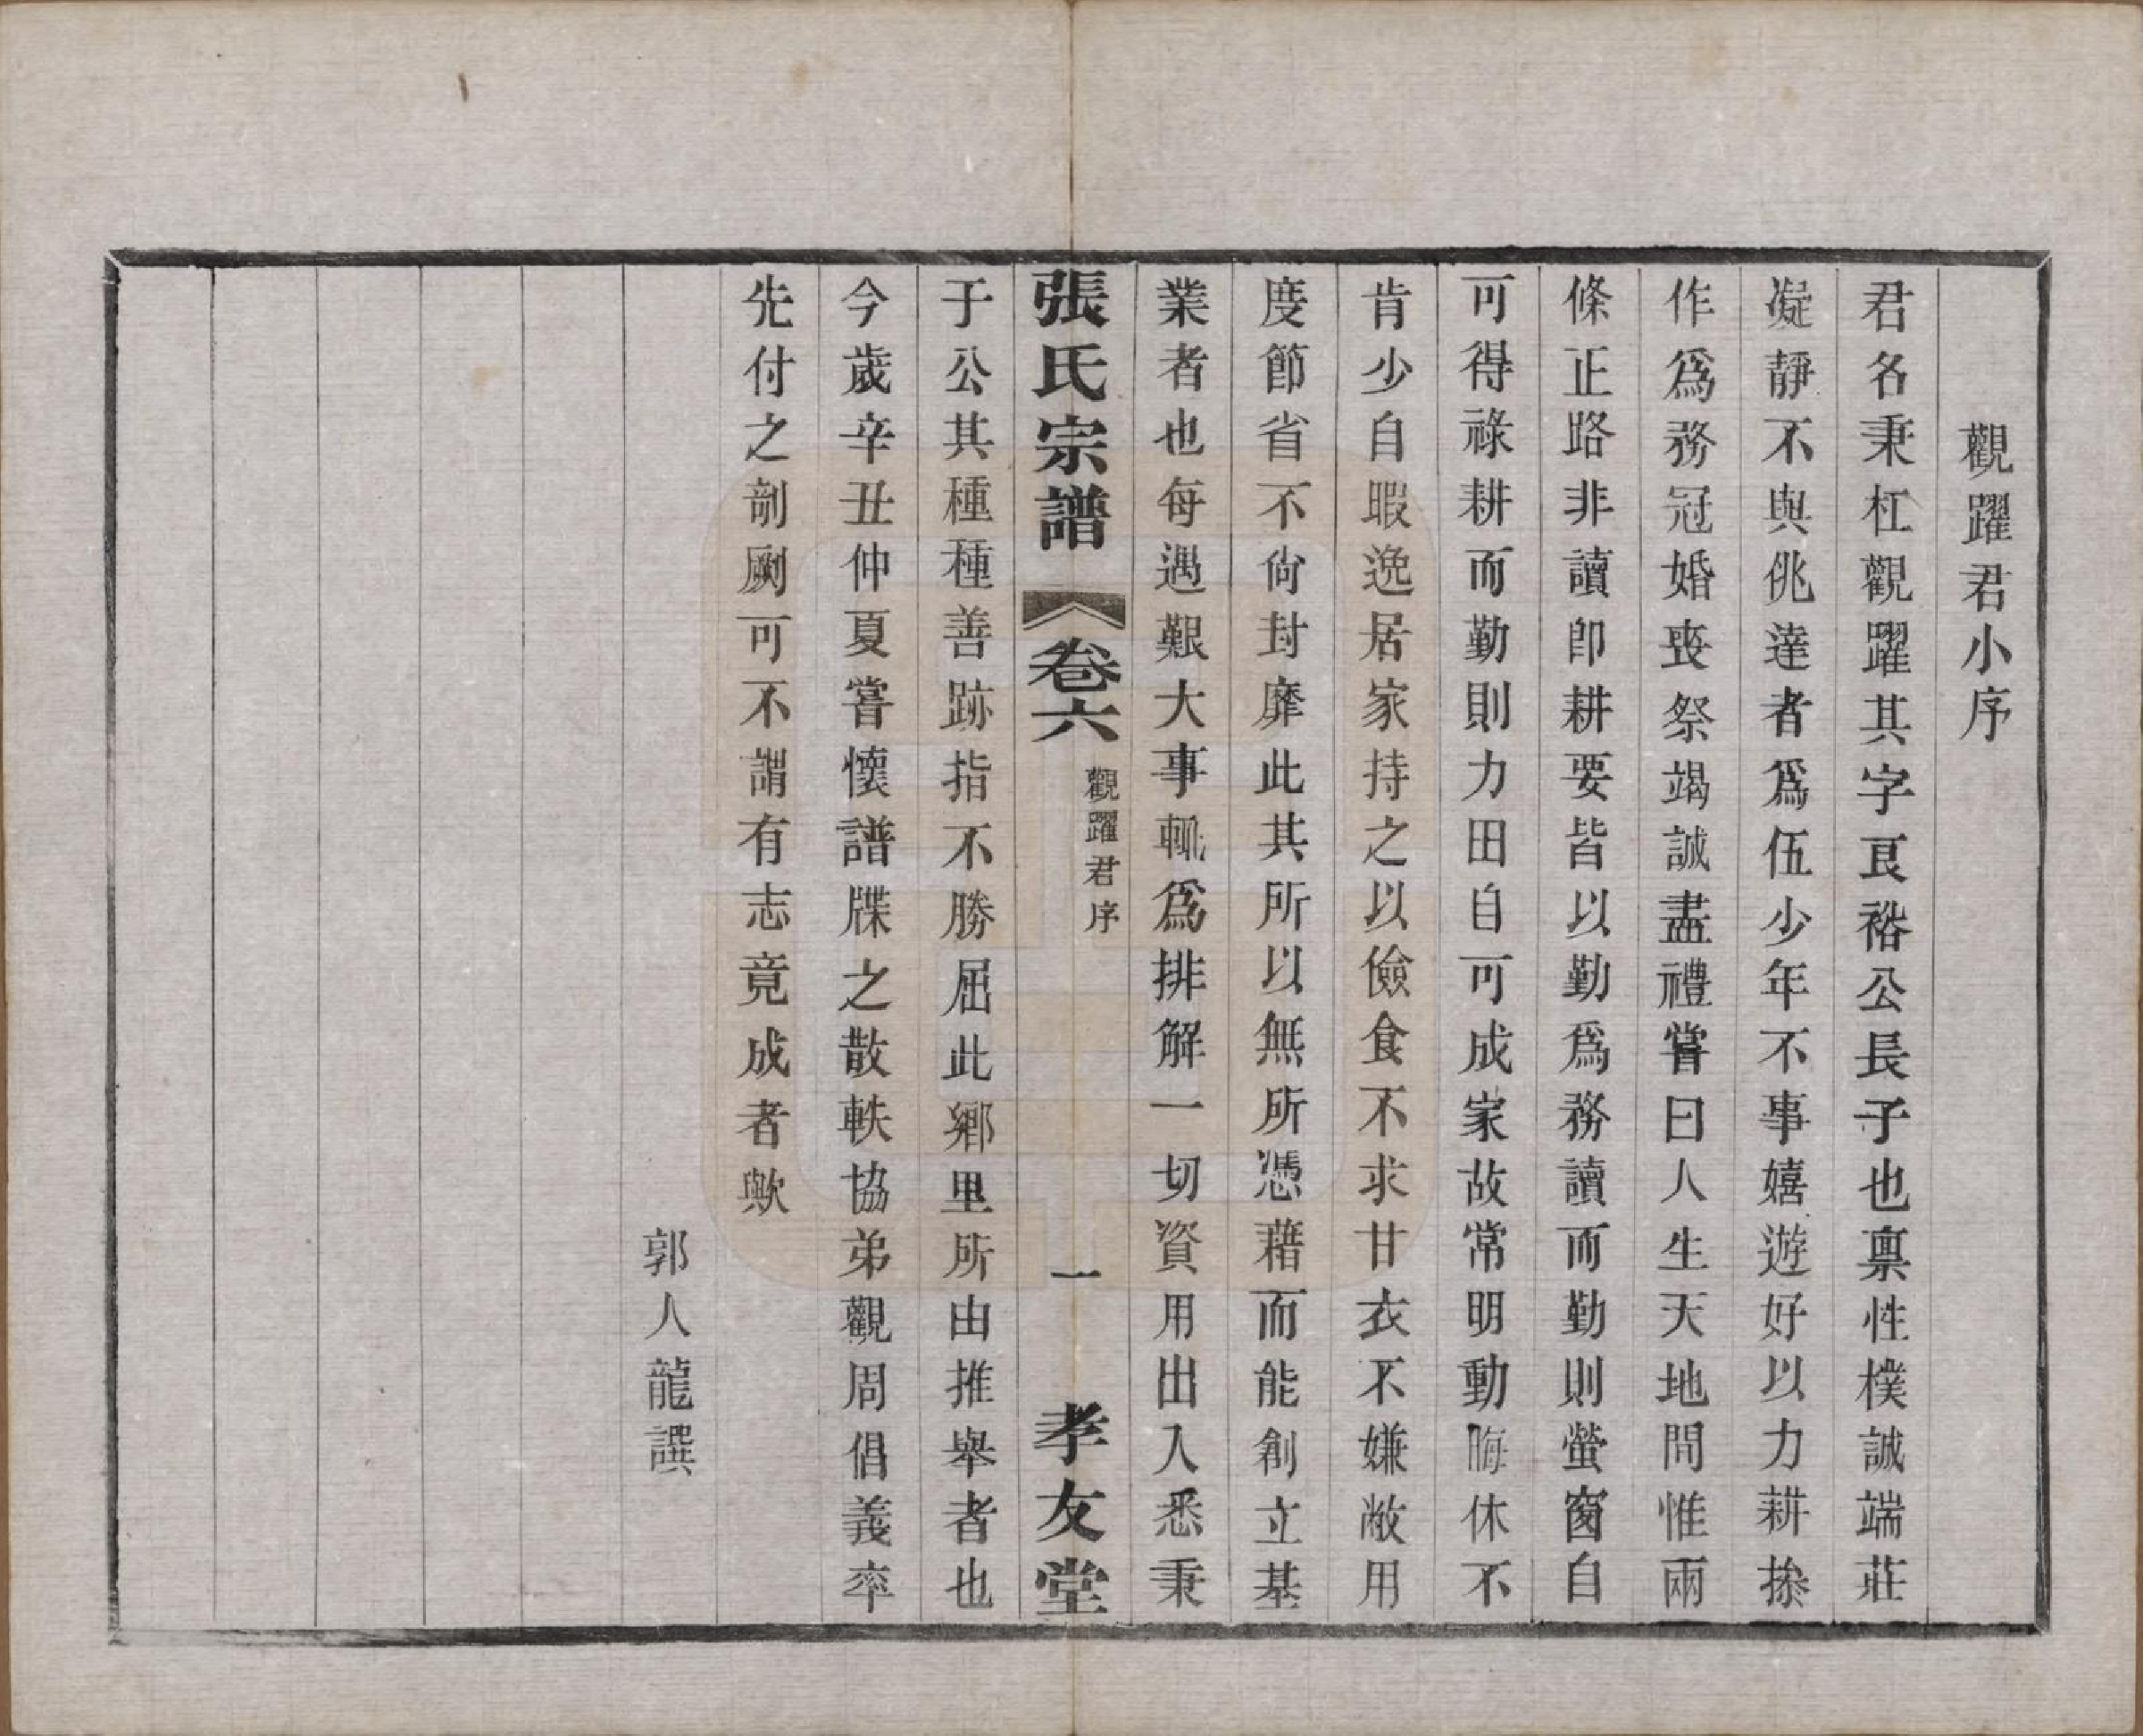 觀躍君小序
君名秉杠觀躍其字艮裕公長子也禀性樸誠端莊
凝靜不與佻達者爲伍少年不事嬉遊好以力耕操
作爲務冠婚喪祭竭誠盡禮嘗曰人生天地間惟兩
條正路非讀卽耕要皆以勤爲務讀而勤則螢窗自
可得祿耕而勤則力田自可成家故常明動晦休不
肯少自暇逸居家持之以儉食不求甘衣不嫌敝用
度節省不尙封靡此其所以無所憑藉而能創立基
業者也每遇艱大事輒爲排解一切資用出入悉秉
張氏宗譜
卷六
觀躍君序
一
孝友堂
于公其種種善跡指不勝屈此鄉里所由推舉者也
今歲辛丑仲夏嘗懷譜牒之散軼協弟觀周倡義率
先付之剞劂可不謂有志竟成者歟
郭人龍譔